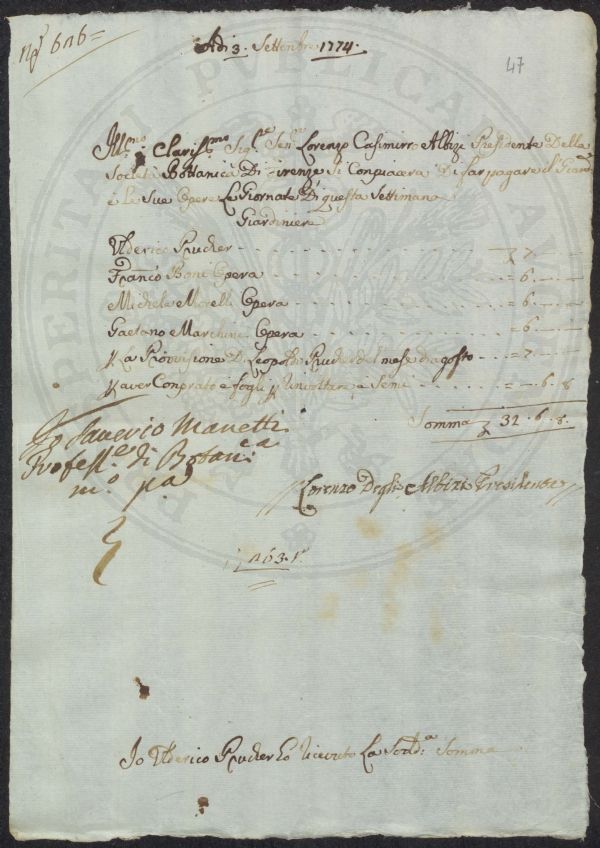 Adi 3. Settembre 1774.
47
Ill.mo e Claris.mo Sig.re Sen.re Lorenzo Casimirro Albizi Presidente Della
Societa Bottanica Di Firenze Si Conpiacera Di far pagare il Giard.re
e le Sue Opere Le Giornate Di questa Settimana
Giardiniere
Ulderico Prucher - - - 7 -
Franco Boni Opera - - - = 6. -
Michele Morelli Opera - - - = 6 -
Gaetano Marchini Opera - - - = 6 -
La Provisione Di Leopoldo Prucher del mese di agosto - - = 7. -
aver Conprato e fogli Rinvoltare e Semi - - = - 6. 8
Somma 32. 6. 8.
Io Saverio Manetti
Profess.e di Botan.ca
m.o p.a
Lorenzo Degli Albizi Presidente
n63.
Io Ulderico Prucher ho Riceuto La Sud.a Somma